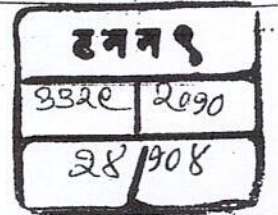 हनन ९
३३२९ २०१०
२४/१०४